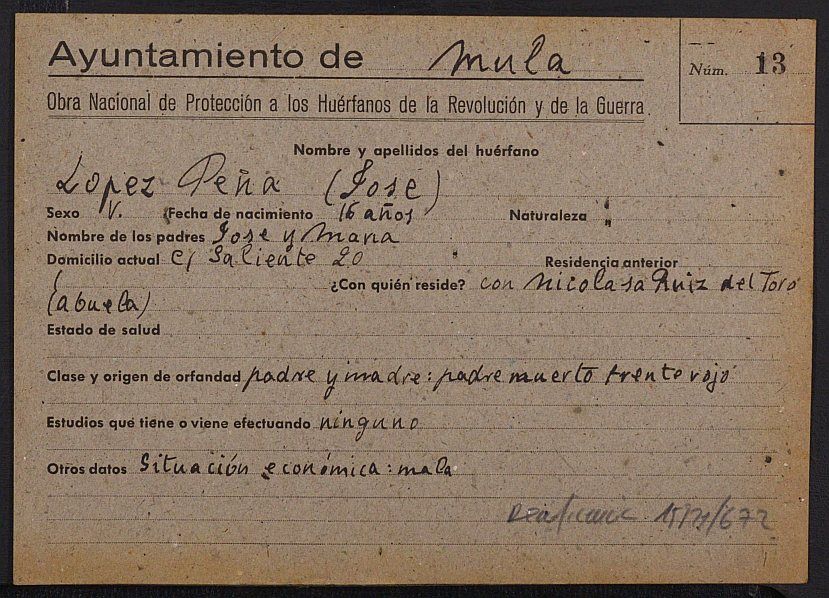 Ayuntamiento de Mula
Núm. 13
Obra Nacional de Protección a los Huérfanos de la Revolución y de la Guerra
Nombre y apellidos del huérfano
Lopez Peña (Jose)
Sexo V. Fecha de nacimiento 16 años Naturaleza
Nombre de los padres Jose y Maria
Domicilio actual C/ Saliente 20 Residencia anterior
¿Con quién reside? con Nicolasa Ruiz del Toro
(abuela)
Estado de salud
Clase y origen de orfandad padre y madre: padre muerto frente rojo
Estudios que tiene o viene efectuando ninguno
Otros datos Situación económica: mala